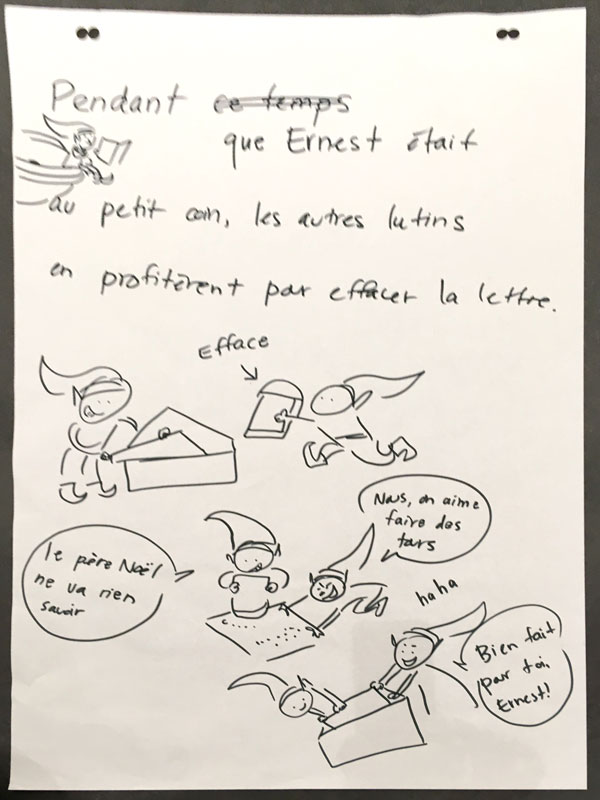 Pendant ce temps
que Ernest était
au petit coin, les autres lutins
en profitèrent pour effacer la lettre.
Efface
Nous, on aime
faire des
tours
le père Noël
ne va rien
savoir
haha
Bien fait
pour toi,
Ernest!